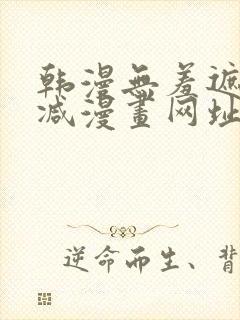 韩漫無羞遮
减漫畫网址
逆命而生、背